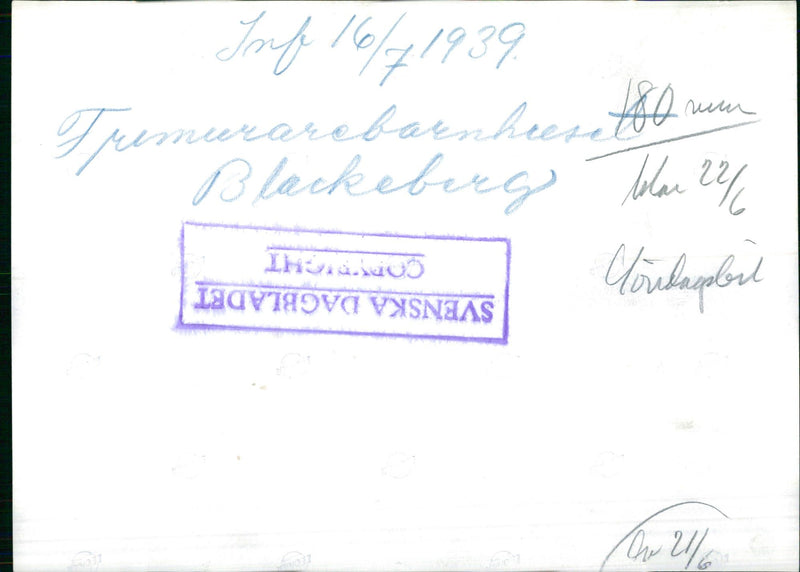 Inf 16/7 1939.
Frimurarebarnhuset
180 mm
Blackeberg
klar 22/6
SVENSKA DAGBLADET
COPYRIGHT
21/6